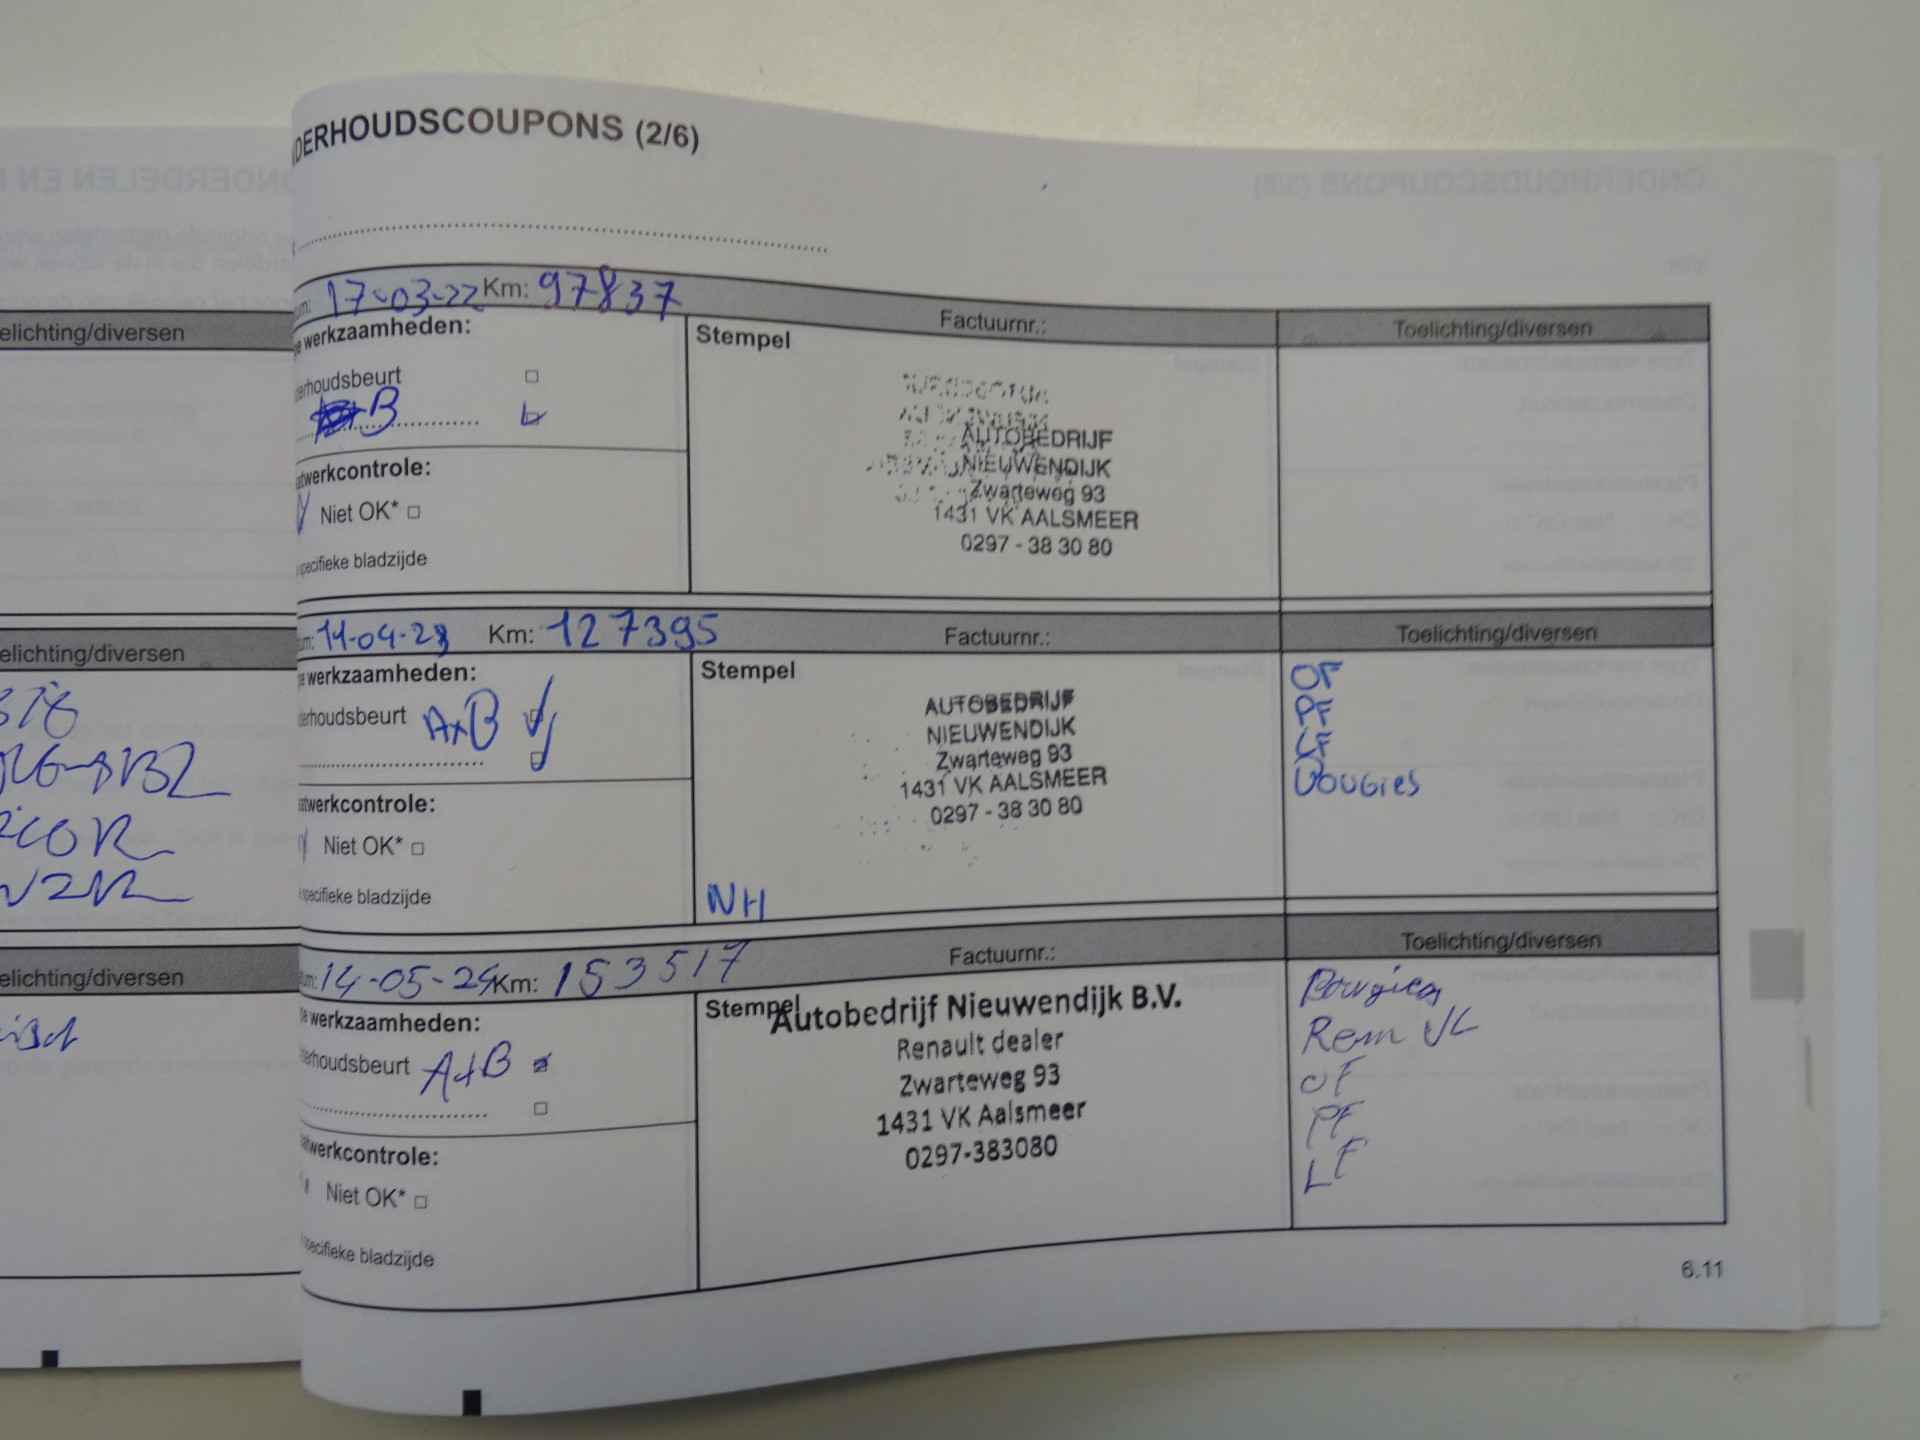 DERHOUDSCOUPONS (2/6)
um: 17-03-22 Km: 97837 Factuurnr.: Toelichting/diversen
e werkzaamheden: Stempel
erhoudsbeurt
B
AUTOBEDRIJF
NIEUWENDIJK
Zwarteweg 93
1431 VK AALSMEER
0297 - 38 30 80
atwerkcontrole:
Niet OK*
specifieke bladzijde
um: 11-04-23 Km: 127395 Factuurnr.: Toelichting/diversen
e werkzaamheden: Stempel
erhoudsbeurt A+B
AUTOBEDRIJF
NIEUWENDIJK
Zwarteweg 93
1431 VK AALSMEER
0297 - 38 30 80
OF
PF
LF
BOUGIES
atwerkcontrole:
Niet OK*
specifieke bladzijde
NH
um: 14-05-24 Km: 153517 Factuurnr.: Toelichting/diversen
e werkzaamheden: Stempel
erhoudsbeurt A+B
Autobedrijf Nieuwendijk B.V.
Renault dealer
Zwarteweg 93
1431 VK Aalsmeer
0297-383080
Bougies
Rem VL
OF
PF
LF
atwerkcontrole:
Niet OK*
specifieke bladzijde
6.11
elichting/diversen
elichting/diversen
elichting/diversen